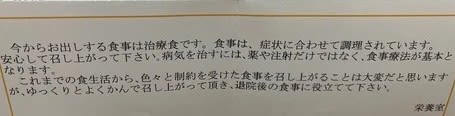 今からお出しする食事は治療食です。食事は、症状に合わせて調理されています。
安心して召し上がって下さい。病気を治すには、薬や注射だけではなく、食事療法が基本と
なります。
これまでの食生活から、色々と制約を受けた食事を召し上がることは大変だと思います
が、ゆっくりとよくかんで召し上がって頂き、退院後の食事に役立てて下さい。
栄養室